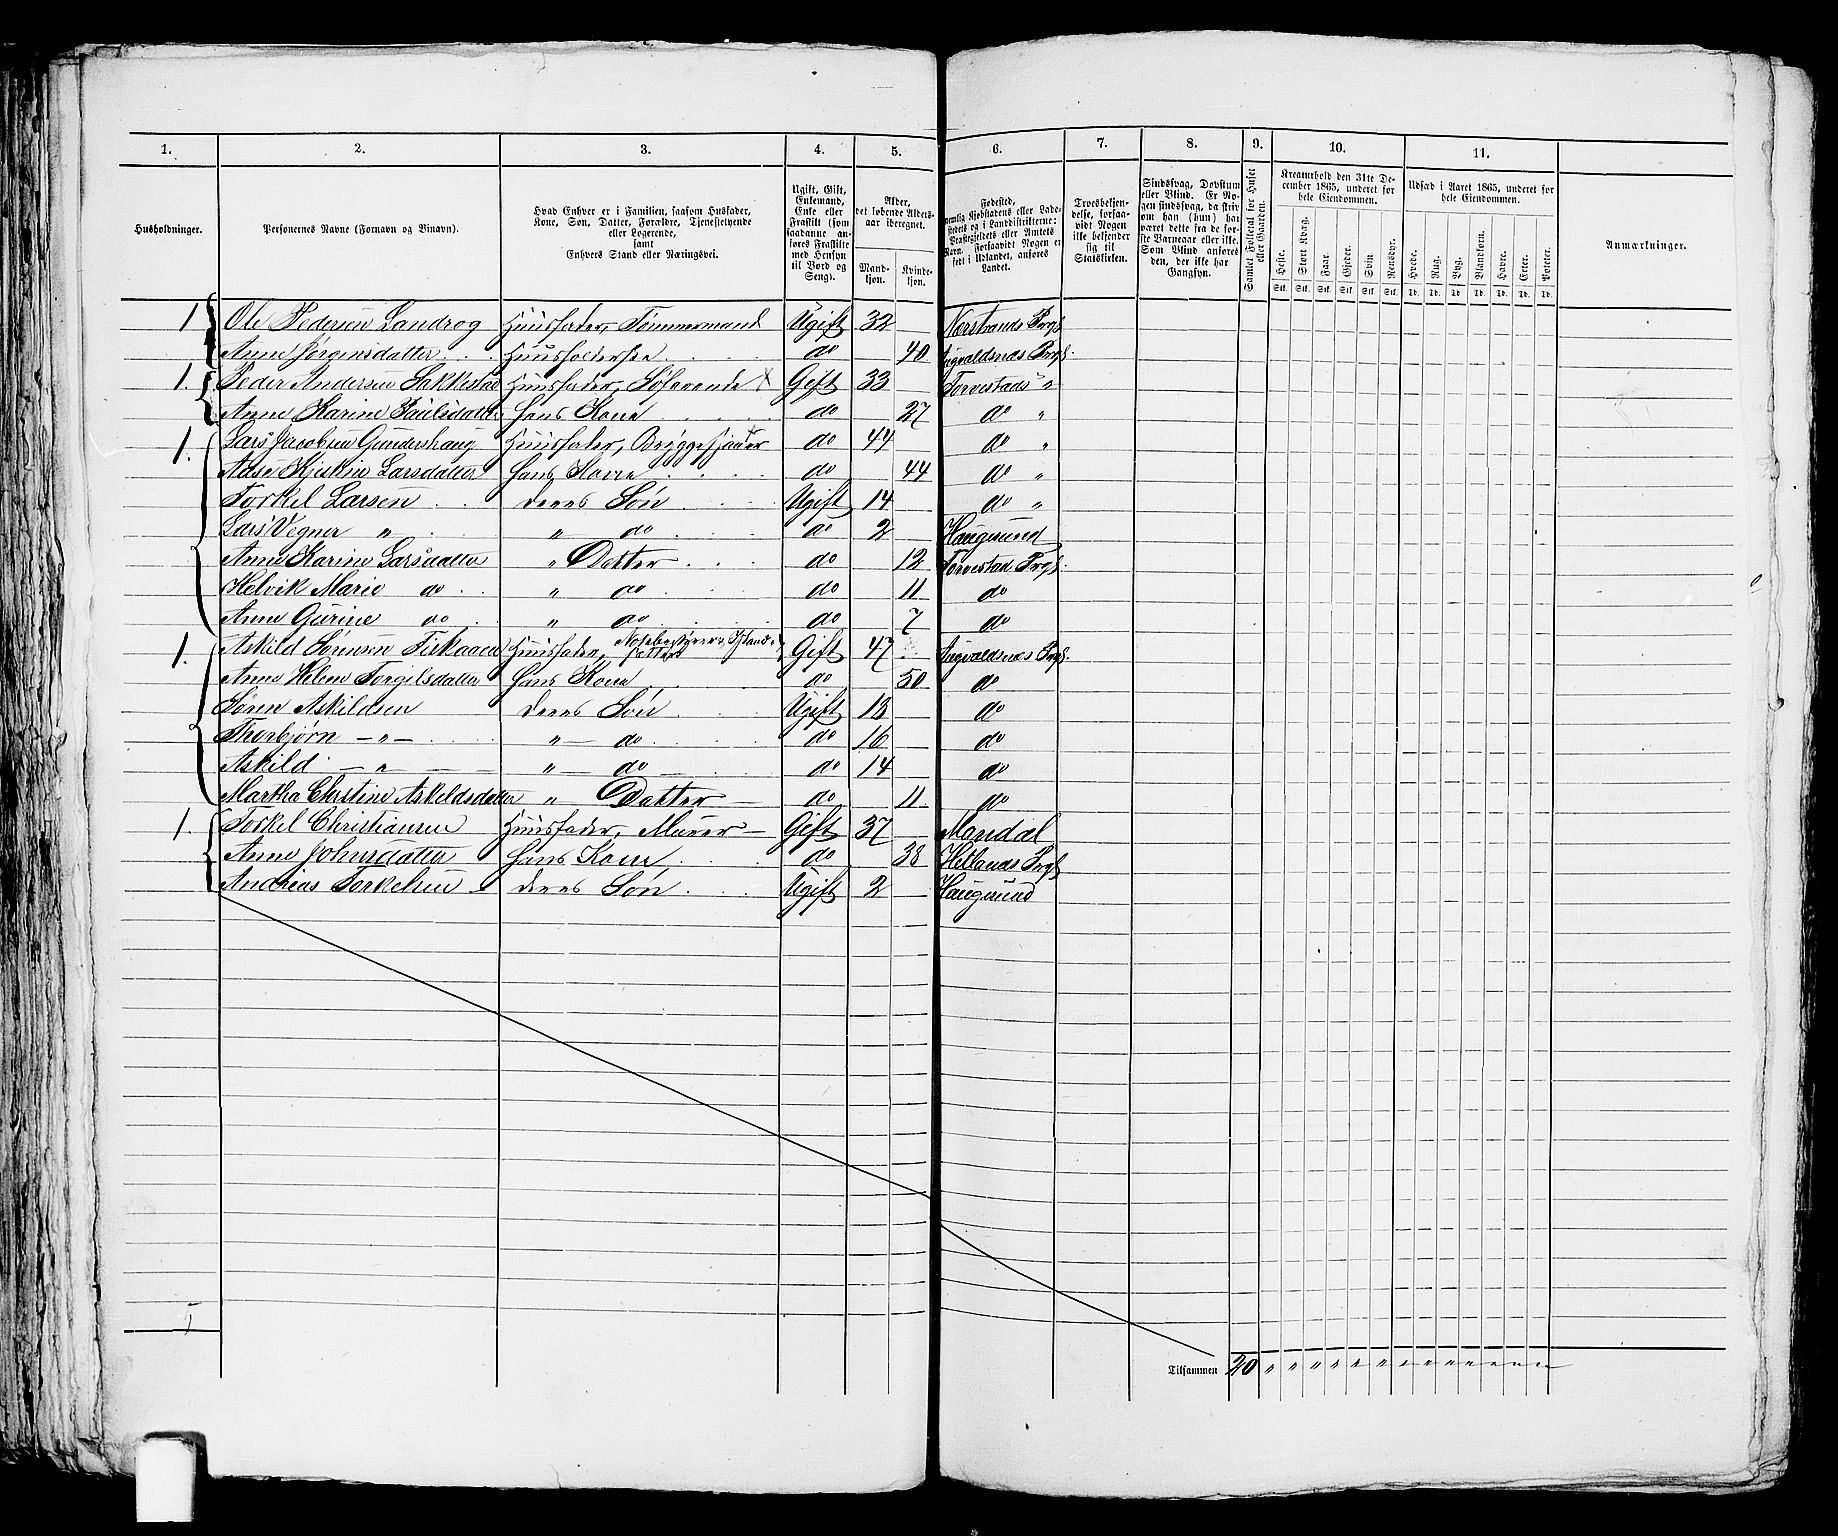 1. 2. 3. 4. 5. 6. 7. 8. 9. 10. 11.
Husholdninger.
Personernes Navne (Fornavn og Binavn).
Hvad Enhver er i Familien, saasom Husfader,
Kone, Søn, Datter, Forældre, Tjenestetyende
eller Logerende,
samt
Enhvers Stand eller Næringsvei.
Ugift, Gift,
Enkemand,
Enke eller
Fraskilt (som
saadanne an-
føres Fraskilte
med Hensyn
til Bord og
Seng).
Alder,
det løbende Alders-
aar iberegnet.
Mand-
kjøn.
Kvinde-
kjøn.
Fødested,
nemlig Kjøbstadens eller Lade-
stedets og i Landdistrikterne:
Præstegjeldets eller Amtets
Navn. Forsaavidt Nogen er
født i Udlandet, anføres
Landet.
Troesbekjen-
delse, forsaa-
vidt Nogen
ikke bekjender
sig til
Statskirken.
Sindssvag, Døvstum
eller Blind. Er No-
gen sindssvag, da skriv
om han (hun) har
været dette fra de for-
ste Barneaar eller ille.
Som Blind anføres
den, der ikke har
Gangsyn.
Samlet Folketal for Huset
eller Gaarden.
Kreaturhold den 31te De-
cember 1865, underet for
hele Eiendommen.
Heste. Stort Kvæg. Faar. Gjeder. Svin. Rensdyr.
Stk. Stk. Stk. Stk. Stk. Stk.
Udsæd i Aaret 1865, underet for
hele Eiendommen.
Hvede. Rug. Byg. Blandkorn. Havre. Erter. Poteter.
Td. Td. Td. Td. Td. Td. Td.
Anmærkninger.
1 Ole Pedersen Landrog Huusfader, Tømmermand Ugift 32 Nærstrands Prgl
Anne Jørgensdatter Huusholderske do 40 Augvaldsnæs Prgl.
1. Peder Andersen Sakkestad Huusfader, Søfarende X Gift 33 Torvestads "
Anne Karine Poulsdatter Hans Kone do 27 do "
1. Lars Jacobsen Gundershaug Huusfader, Bryggesjauer do 44 do "
Aase Kjistine Larsdatter Hans Kone do 44 do "
Torkel Larsen deres Søn Ugift 14 do "
Lars Vegner " " do do 2 Haugesund
Anne Karine Larsdatter " Datter do 12 Torvestad Prgl.
Helvik Marie do " do do 11 do
Anne Gurine do " do do 7 do
1. Askild Sørensen Fiskaaen Huusfader, Gift 47 Augvaldsnæs Prgl.
Anne Helene Torgilsdatter Hans Kone do 50 do
Søren Askildsen deres Søn Ugift 18 do
Thorbjørn — " — " — do do 16 do
Askild — " — " — do — do 14 do
Martha Christine Askildsdatter " Datter — do 11. do
1. Torkel Christiansen Huusfader, Murer — Gift 37 Mandal
Anne Johnsdatter Hans Kone do 38 Hetlands Prgl
Andreas Torkelsen deres Søn Ugift 2 Haugesund
5
Tilsammen 20 " " " " " " " " " " " " "